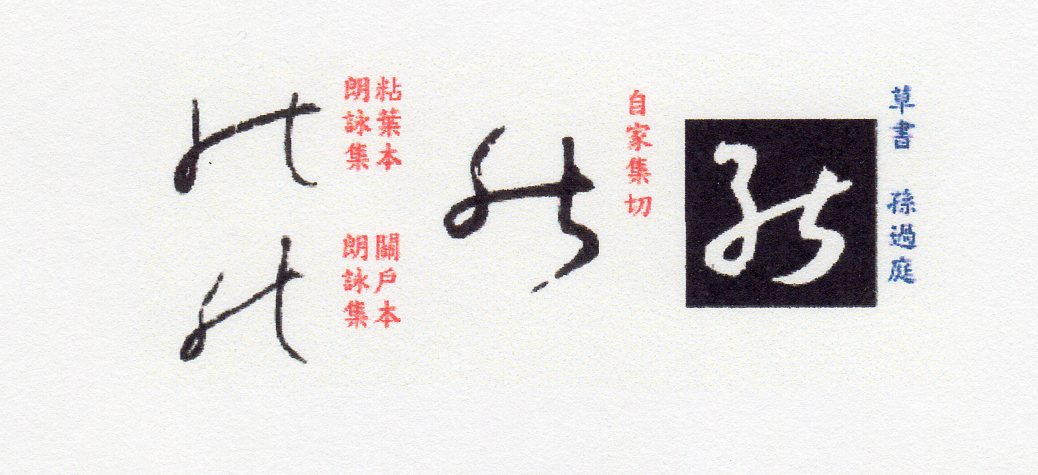 草書 孫過庭
能
自家集切
能
粘葉本
朗詠集
能
關戶本
朗詠集
能